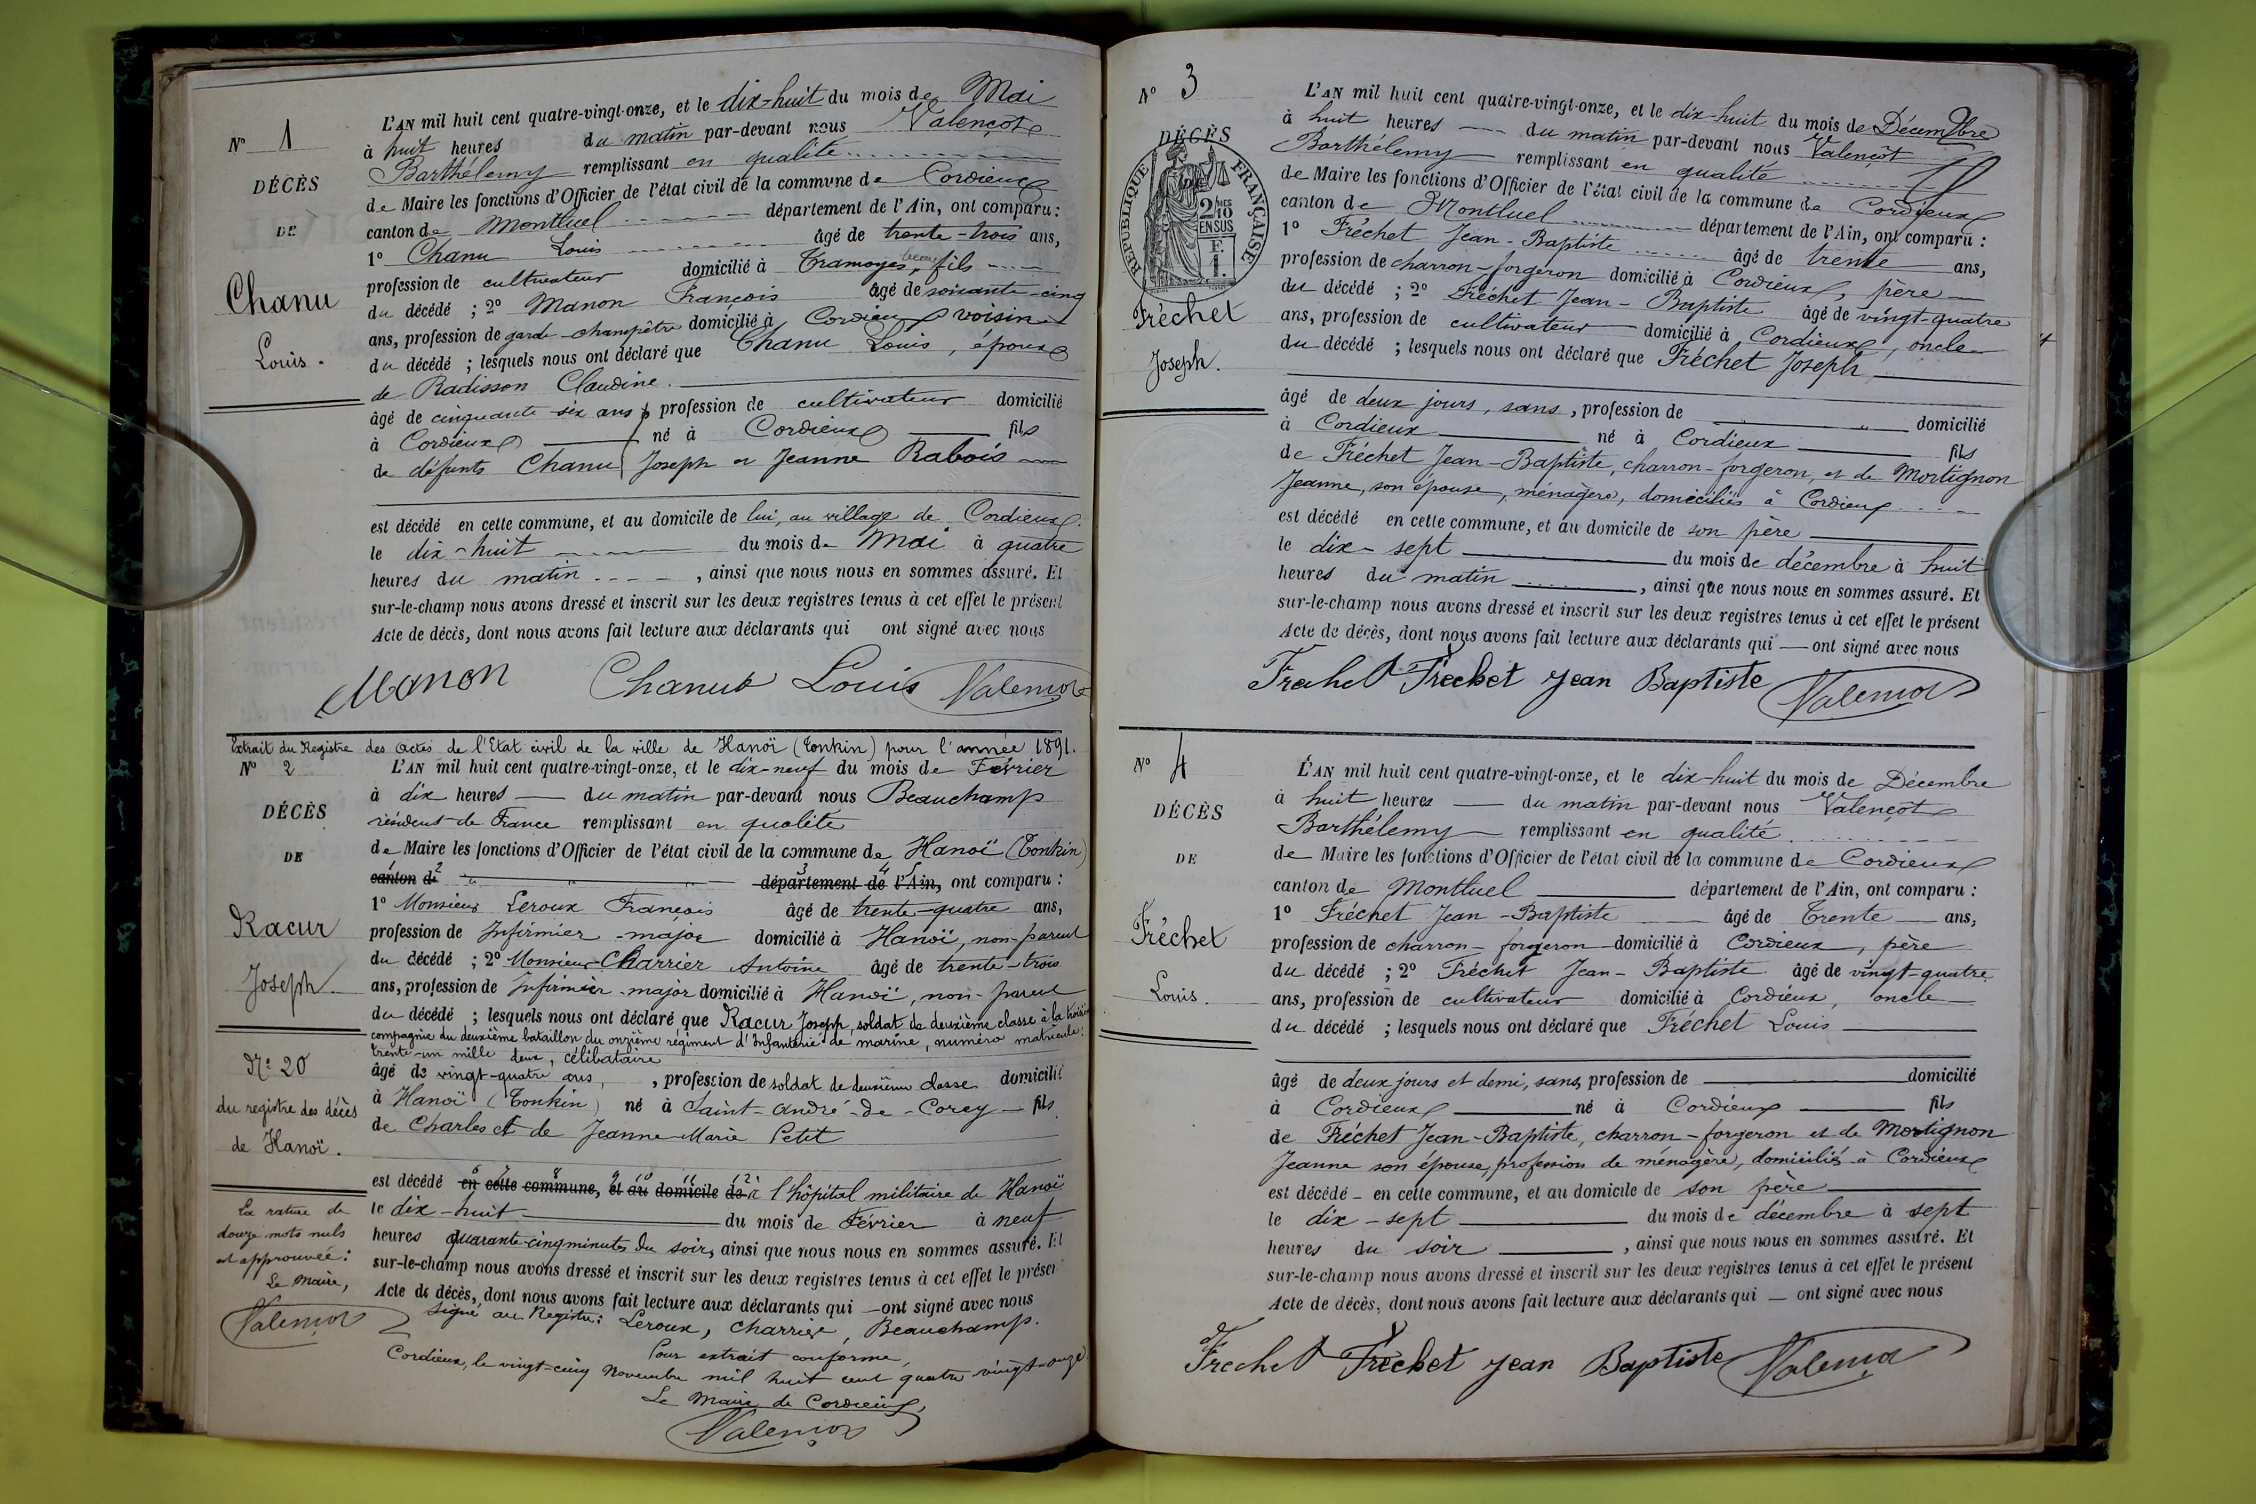 N° 1
DÉCÈS
DE
Chanu
Louis.
L'AN mil huit cent quatre-vingt-onze, et le dix-huit du mois de Mai
à huit heures du matin par-devant nous Valençot
Barthélemy remplissant en qualité
de Maire les fonctions d'Officier de l'état civil de la commune de Cordieux
canton de Montluel département de l'Ain, ont comparu :
1° Chanu Louis âgé de trente-trois ans,
profession de cultivateur domicilié à Tramoyes, fils
du décédé ; 2° Manon François âgé de soixante-cinq
ans, profession de garde-champêtre domicilié à Cordieux voisin
du décédé ; lesquels nous ont déclaré que Chanu Louis, époux
de Radisson Claudine.
âgé de cinquante-six ans, profession de cultivateur domicilié
à Cordieux né à Cordieux fils
de défunts Chanu Joseph et Jeanne Rabois
est décédé en cette commune, et au domicile de lui, au village de Cordieux.
le dix-huit du mois de Mai à quatre
heures du matin, ainsi que nous nous en sommes assuré. Et
sur-le-champ nous avons dressé et inscrit sur les deux registres tenus à cet effet le présent
Acte de décès, dont nous avons fait lecture aux déclarants qui ont signé avec nous
Manon Chanut Louis Valençot
Extrait du Registre des actes de l'Etat civil de la ville de Hanoï (Tonkin) pour l'année 1891.
N° 2
DÉCÈS
DE
Racur
Joseph.
N° 20
du registre des décès
de Hanoï.
La rature de
douze mots nuls
est approuvée :
Le Maire,
Valençot
L'AN mil huit cent quatre-vingt-onze, et le dix-neuf du mois de Février
à dix heures du matin par-devant nous Beauchamp
résident de France remplissant en qualité
de Maire les fonctions d'Officier de l'état civil de la commune de Hanoï (Tonkin)
canton de département de l'Ain, ont comparu :
1° Monsieur Leroux François âgé de trente-quatre ans,
profession de Infirmier-major domicilié à Hanoï, non-parent
du décédé ; 2° Monsieur Charrier Antoine âgé de trente-trois
ans, profession de Infirmier-major domicilié à Hanoï, non-parent
du décédé ; lesquels nous ont déclaré que Racur Joseph, soldat de deuxième classe à la troisième
compagnie du deuxième bataillon du onzième régiment d'Infanterie de marine, numéro matricule :
trente-un mille deux, célibataire
âgé de vingt-quatre ans, profession de soldat de deuxième classe domicilié
à Hanoï (Tonkin) né à Saint-André-de-Corcy fils
de Charles et de Jeanne-Marie Petit
est décédé en cette commune, et au domicile de à l'hôpital militaire de Hanoï
le dix-huit du mois de Février à neuf
heures quarante-cinq minutes du soir, ainsi que nous nous en sommes assuré. Et
sur-le-champ nous avons dressé et inscrit sur les deux registres tenus à cet effet le présent
Acte de décès, dont nous avons fait lecture aux déclarants qui ont signé avec nous
Signé au Registre : Leroux, Charrier, Beauchamp.
Pour extrait conforme,
Cordieux, le vingt-cinq Novembre mil huit cent quatre-vingt-onze
Le Maire de Cordieux,
Valençot
N° 3
DÉCÈS
RÉPUBLIQUE FRANÇAISE
2/10 MES
EN SUS
F.
1.
Fréchet
Joseph.
L'AN mil huit cent quatre-vingt-onze, et le dix-huit du mois de Décembre
à huit heures du matin par-devant nous Valençot
Barthélemy remplissant en qualité
de Maire les fonctions d'Officier de l'état civil de la commune de Cordieux
canton de Montluel département de l'Ain, ont comparu :
1° Fréchet Jean-Baptiste âgé de trente ans,
profession de charron-forgeron domicilié à Cordieux, père
du décédé ; 2° Fréchet Jean-Baptiste âgé de vingt-quatre
ans, profession de cultivateur domicilié à Cordieux, oncle
du décédé ; lesquels nous ont déclaré que Fréchet Joseph
âgé de deux jours, sans, profession de domicilié
à Cordieux né à Cordieux fils
de Fréchet Jean-Baptiste, charron-forgeron, et de Mortignon
Jeanne, son épouse, ménagère, domiciliés à Cordieux
est décédé en cette commune, et au domicile de son père
le dix-sept du mois de décembre à huit
heures du matin, ainsi que nous nous en sommes assuré. Et
sur-le-champ nous avons dressé et inscrit sur les deux registres tenus à cet effet le présent
Acte de décès, dont nous avons fait lecture aux déclarants qui ont signé avec nous
Frechet Frechet Jean Baptiste Valençot
N° 4
DÉCÈS
DE
Fréchet
Louis.
L'AN mil huit cent quatre-vingt-onze, et le dix-huit du mois de Décembre
à huit heures du matin par-devant nous Valençot
Barthélemy remplissant en qualité
de Maire les fonctions d'Officier de l'état civil de la commune de Cordieux
canton de Montluel département de l'Ain, ont comparu :
1° Fréchet Jean-Baptiste âgé de Trente ans,
profession de charron-forgeron domicilié à Cordieux, père
du décédé ; 2° Fréchet Jean-Baptiste âgé de vingt-quatre
ans, profession de cultivateur domicilié à Cordieux, oncle
du décédé ; lesquels nous ont déclaré que Fréchet Louis
âgé de deux jours et demi, sans, profession de domicilié
à Cordieux né à Cordieux fils
de Fréchet Jean-Baptiste, charron-forgeron et de Mortignon
Jeanne son épouse, profession de ménagère, domiciliés à Cordieux
est décédé en cette commune, et au domicile de son père
le dix-sept du mois de décembre à sept
heures du soir, ainsi que nous nous en sommes assuré. Et
sur-le-champ nous avons dressé et inscrit sur les deux registres tenus à cet effet le présent
Acte de décès, dont nous avons fait lecture aux déclarants qui ont signé avec nous
Frechet Frechet Jean Baptiste Valençot